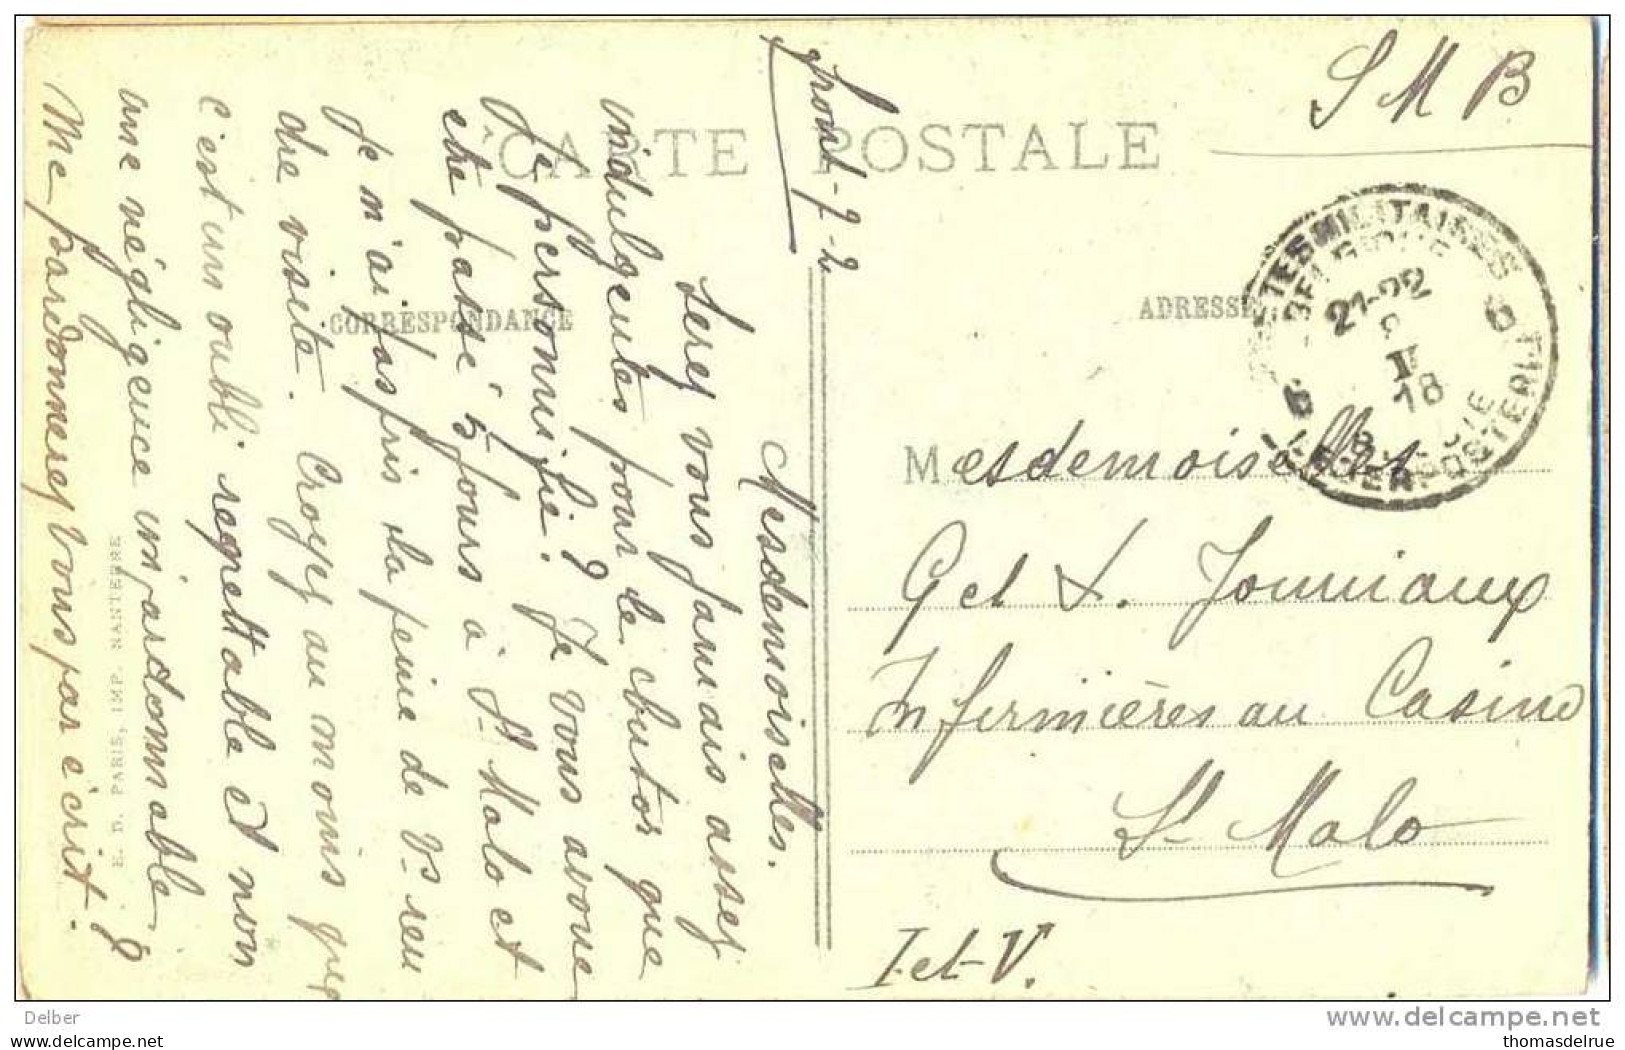 CARTE POSTALE
CORRESPONDANCE
ADRESSE
S M B
POSTES MILITAIRES
BELGIQUE
6 6
21-22
II
18
LEGERPOSTERIJ
Mesdemoiselles
G et L. Jouniaux
Infirmières au Casino
St Malo
I et V.
front - 9-2
Mesdemoiselles.
Serez vous jamais assez
indulgentes pour le butor que
Je personnifie? Je vous avoue
été passé 5 jours à St Malo et
Je n'ai pas pris la peine de vs ren
dre visite. Croyez au moins que
c'est un oubli regrettable et non
une négligence impardonnable
Me pardonnerez vous par écrit?
E. D. PARIS, IMP. NANTERRE
Delber
delcampe.net
(c) canva.com
thomasdelrue